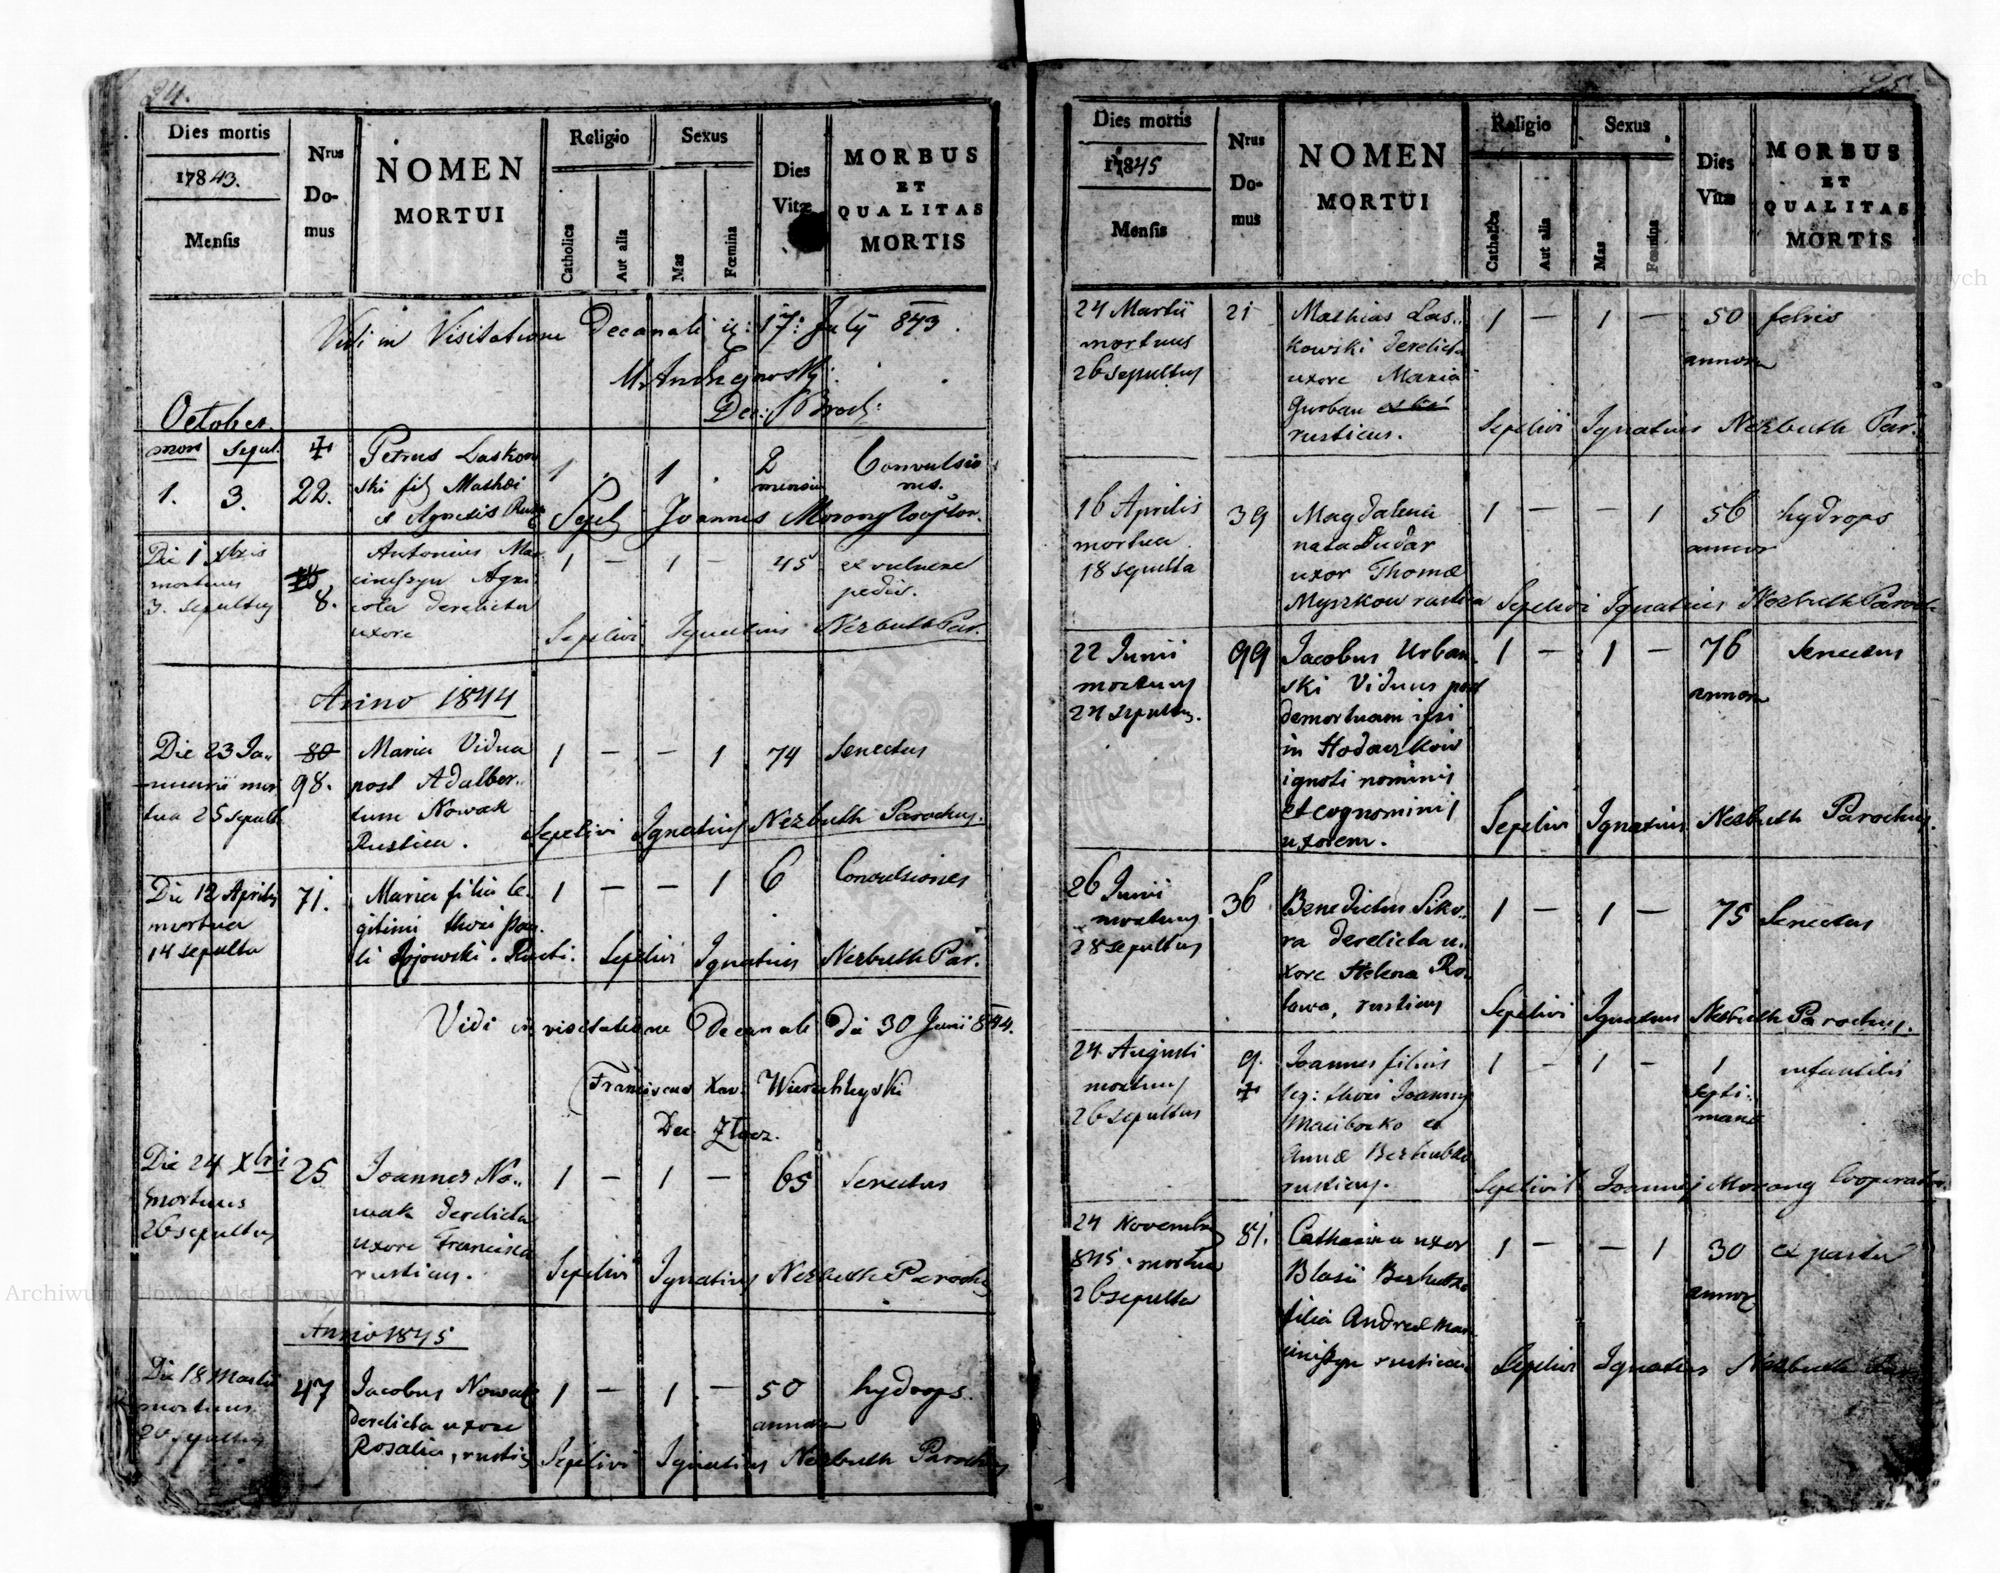 24.
Dies mortis
1843.
Mensis
Nrus
Do-
mus
NOMEN
MORTUI
Religio
Catholica
Aut alia
Sexus
Mas
Fœmina
Dies
Vitæ
MORBUS
ET
QUALITAS
MORTIS
Vidi in Visitatione Decanali 17: July 843.
October.
mort Sepul. 
1. 3. 22. Petrus Laskow
ski fil Mathei
et Agnetis
1 1 2
mensiu
Convulsio
nes.
Sepel Joannes Morong
Die 1 xbris
mortuus
3. sepultus
8.
Antonius Mar
cineszyn Agri
cola derelicta
uxore
1 — 1 — 45 ex vulnere
pedis.
Sepelivi Ignatius Nezbuth Par.
Anno 1844
Die 23 Ja-
nuarii mor
tua 25 sepult
80
98.
Maria Vidua
post Adalber-
tum Nowak
Rustica.
1 — — 1 74 Senectus
Sepelivi Ignatius Nezbuth Parochus.
Die 12 Aprilis
mortua
14 sepulta
71.
Maria filia le-
gitimi thori Pau
li Rojowski. Rusti.
1 — — 1 6 Convulsiones
Sepelivi Ignatius Nezbuth Par.
Vidi in visitatione Decanali die 30 Junii 844.
Franciscus Xav.
Dec.
Die 24 Xbri
mortuus
26 sepultus
25
Joannes No-
wak derelicta
uxore Francisca
rusticus.
1 — 1 — 65 Senectus
Sepelivi Ignatius Nezbuth Parochus
Anno 1845
Die 18 Martii
mortuus
20 sepultus
47
Jacobus Nowak
derelicta uxore
Rosalia, rusticus
1 — 1 — 50
annorum
hydrops.
Sepelivi Ignatius Nezbuth Parochus
25.
Dies mortis
1845
Mensis
Nrus
Do-
mus
NOMEN
MORTUI
Religio
Catholica
Aut alia
Sexus
Mas
Fœmina
Dies
Vitæ
MORBUS
ET
QUALITAS
MORTIS
24 Martii
mortuus
26 sepultus
21
Mathias Las-
kowski derelicta
uxore Maria
Gurban
rusticus.
1 — 1 — 50
annorum
febris
Sepelivi Ignatius Nezbuth Par.
16 Aprilis
mortua
18 sepulta
39
Magdalena
nata Dudar
uxor Thomæ
Myszkow rustica
1 — — 1 56
annor
hydrops
Sepelivi Ignatius Nezbuth Paroch
22 Junii
mortuus
24 sepultus.
99
Jacobus Urban-
ski Viduus post
demortuam ipsi
in Hodaczkow
ignoti nominis
et cognominis
uxorem.
1 — 1 — 76
annorum
Senectus
Sepelivi Ignatius Nezbuth Parochus.
26 Junii
mortuus
28 sepultus
36
Benedictus Siko-
ra derelicta u-
xore Helena Ro-
lowa, rusticus
1 — 1 — 75 Senectus
Sepelivi Ignatius Nezbuth Parochus.
24 Augusti
mortuus
26 sepultus
9.
Joannes filius
leg: thori Joannis
Maciborko et
Annæ
rusticus.
1 — 1 — 1
septi-
manæ
infantilis
Sepelivit Joannes Morong Cooperator
24 Novembris
845. mortua
26 sepulta
81.
Catharina uxor
Blasii
filia Andreæ Mar
cineszyn rustica
1 — — 1 30
annor
ex partu
Sepelivi Ignatius Nezbuth Par
Archiwum Główne Akt Dawnych
Archiwum Główne Akt Dawnych